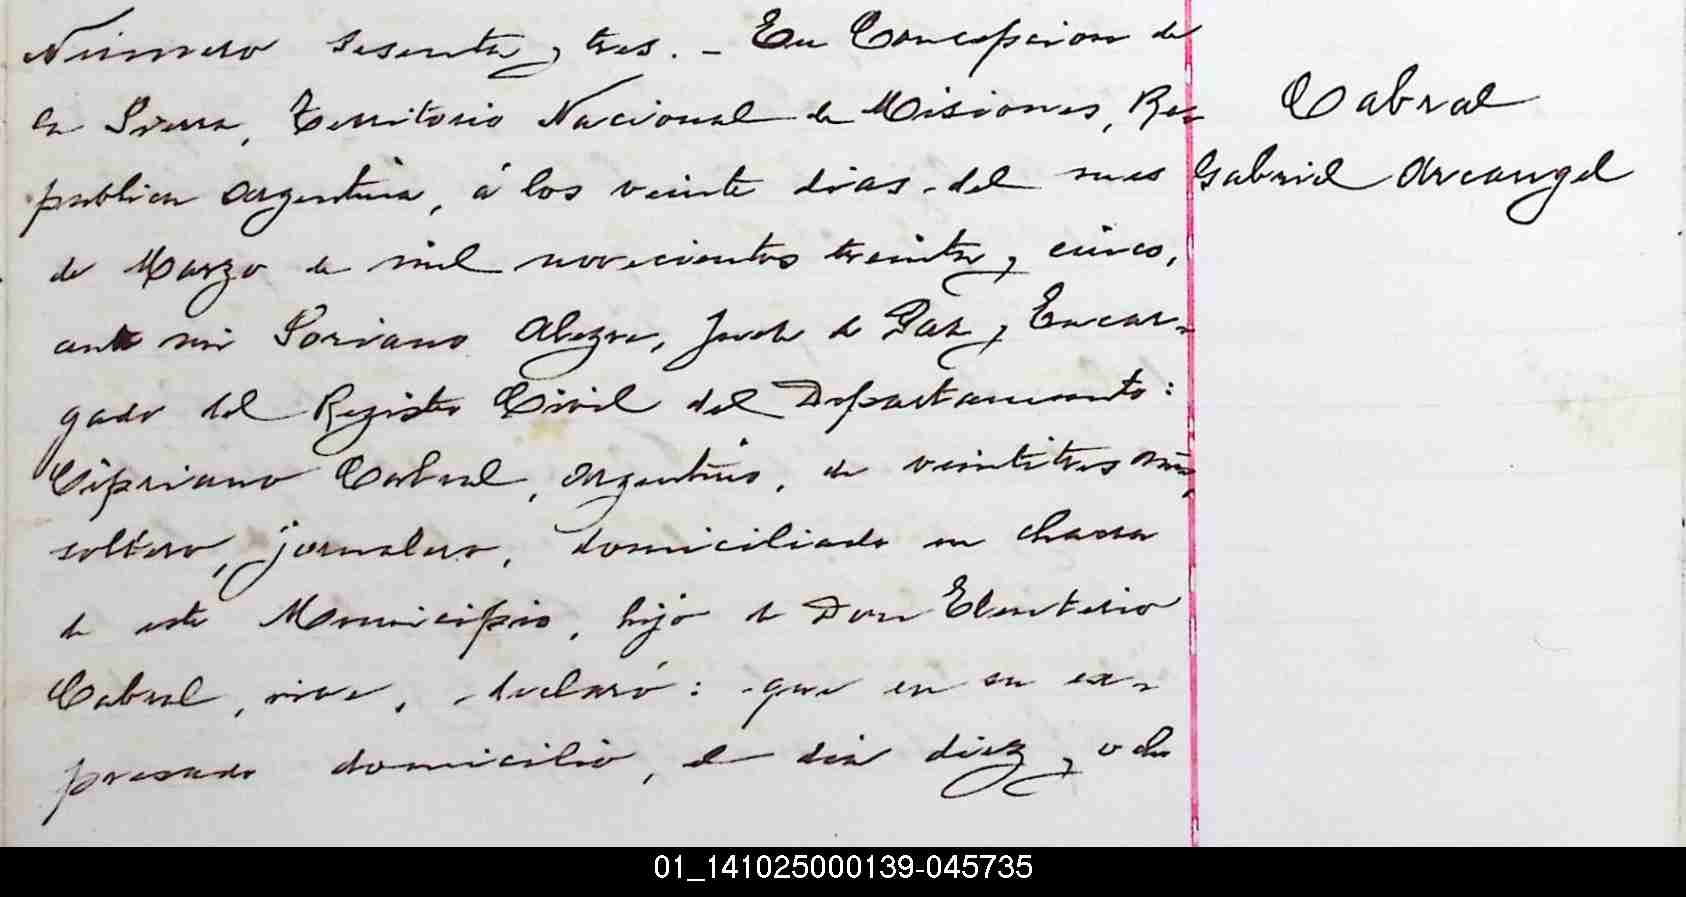 Número sesenta y tres. - En Concepcion de
la Sierra, Territorio Nacional de Misiones, Re-
publica Argentina, á los veinte dias del mes
de Marzo de mil novecientos treinta y cinco,
ante mi Soriano Alegre, Juez de Paz y Encar-
gado del Registro Civil del Departamento:
Cipriano Cabral, argentino, de veintitres años,
soltero, jornalero, domiciliado en chacra
de este Municipio, hijo de Don Eleuterio
Cabral, vive, declaró: que en su ex-
presado domicilio, el dia diez y ocho
Cabral
Gabriel Arcangel
01_141025000139-045735